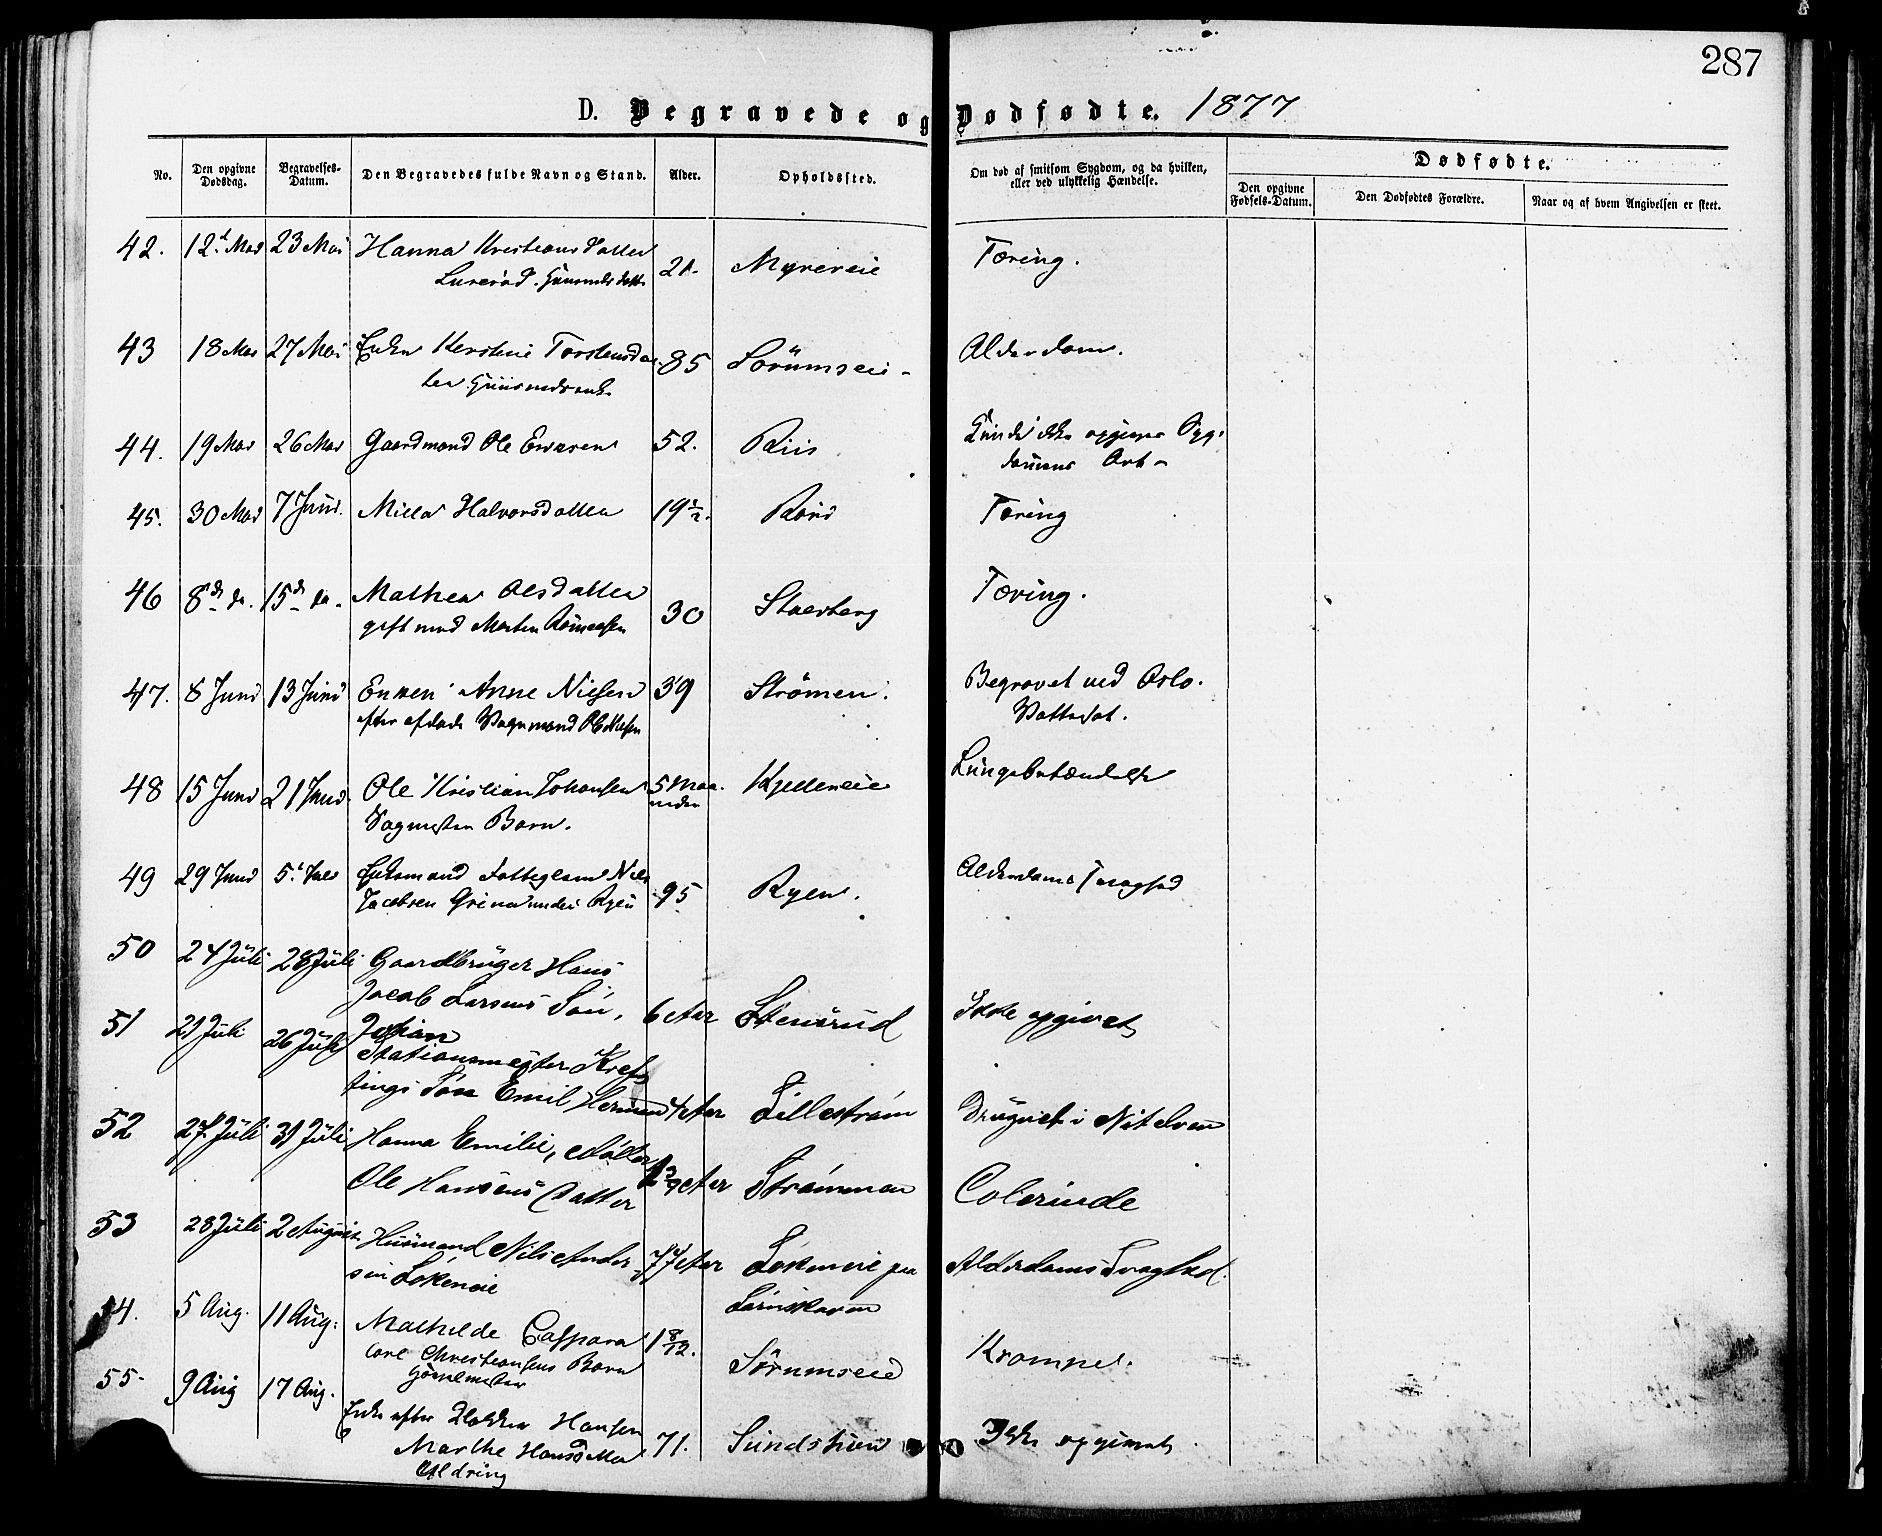 287
D. Begravede og Dødfødte. 1877
No. Den opgivne Dødsdag. Begravelses-Datum. Den Begravedes fulde Navn og Stand. Alder. Opholdssted. Om død af smitsom Sygdom, og da hvilken, eller ved ulykkelig Hændelse. Dødfødte.
Den opgivne Fødsels-Datum. Den Dødfødtes Forældre. Naar og af hvem Angivelsen er skeet.
42. 12t Mai 23 Mai Hanna Kristiansdatter 21. Myrereie Tæring.
43 18 Mai 27 Mai Enke Kerstine Torstensdat 85 Sørumseie Alderdom.
ter
44. 19 Mai 26 Mai Gaardmand Ole Eversen 52. Riis Kunde ikke opgives Syg-
dommens Art
45. 30 Mai 7 Juni Milla Halvorsdatter 19 1/2. Tæring
46 8de do. 15de do. Mathea Olsdatter 30 Tæring.
gift med Morten
47. 8 Juni 13 Juni Enken Anne Nielsen 39 Strømen. Begravet ved Oslo.
efter afdøde Vognmand Ole Nielsen
48 15 Juni 21 Juni Ole Kristian Johansen 5 Maa- Kjelleneie Lungebetændelse
neder
Vogmester Barn.
49 29 Juni 5t Juli Enkemand Fattiglem Nils 95 Ryen. Alderdoms Svaghed
Jacobsen under Ryen
50 24 Juli 28 Juli Gaardbruger Hans
Jacob Larsens Søn, 6 Aar Stensrud Ikke opgivet
51 21 Juli 26 Juli Johan
Stationsmester Kref
tings Søn Emil Herman 4 Aar Lillestrøm Druknet i Nitelven
52 27 Juli 31 Juli Hanna Emilie, Møller
Ole Hansens Datter Aar Strømmen Colerinde
53 28 Juli 2 August Husmand Nils Ander 77 Aar Løkeneie paa Alderdoms Svaghed.
sen Løkeneie
54. 5 Aug. 11 Aug: Mathilde Caspara 1 8/12. Sørumseie Krampe.
Carl Christiansens Barn
55 9 Aug 17 Aug. Enke efter Hansen 71. Ikke opgivet
Marthe Hansdatter